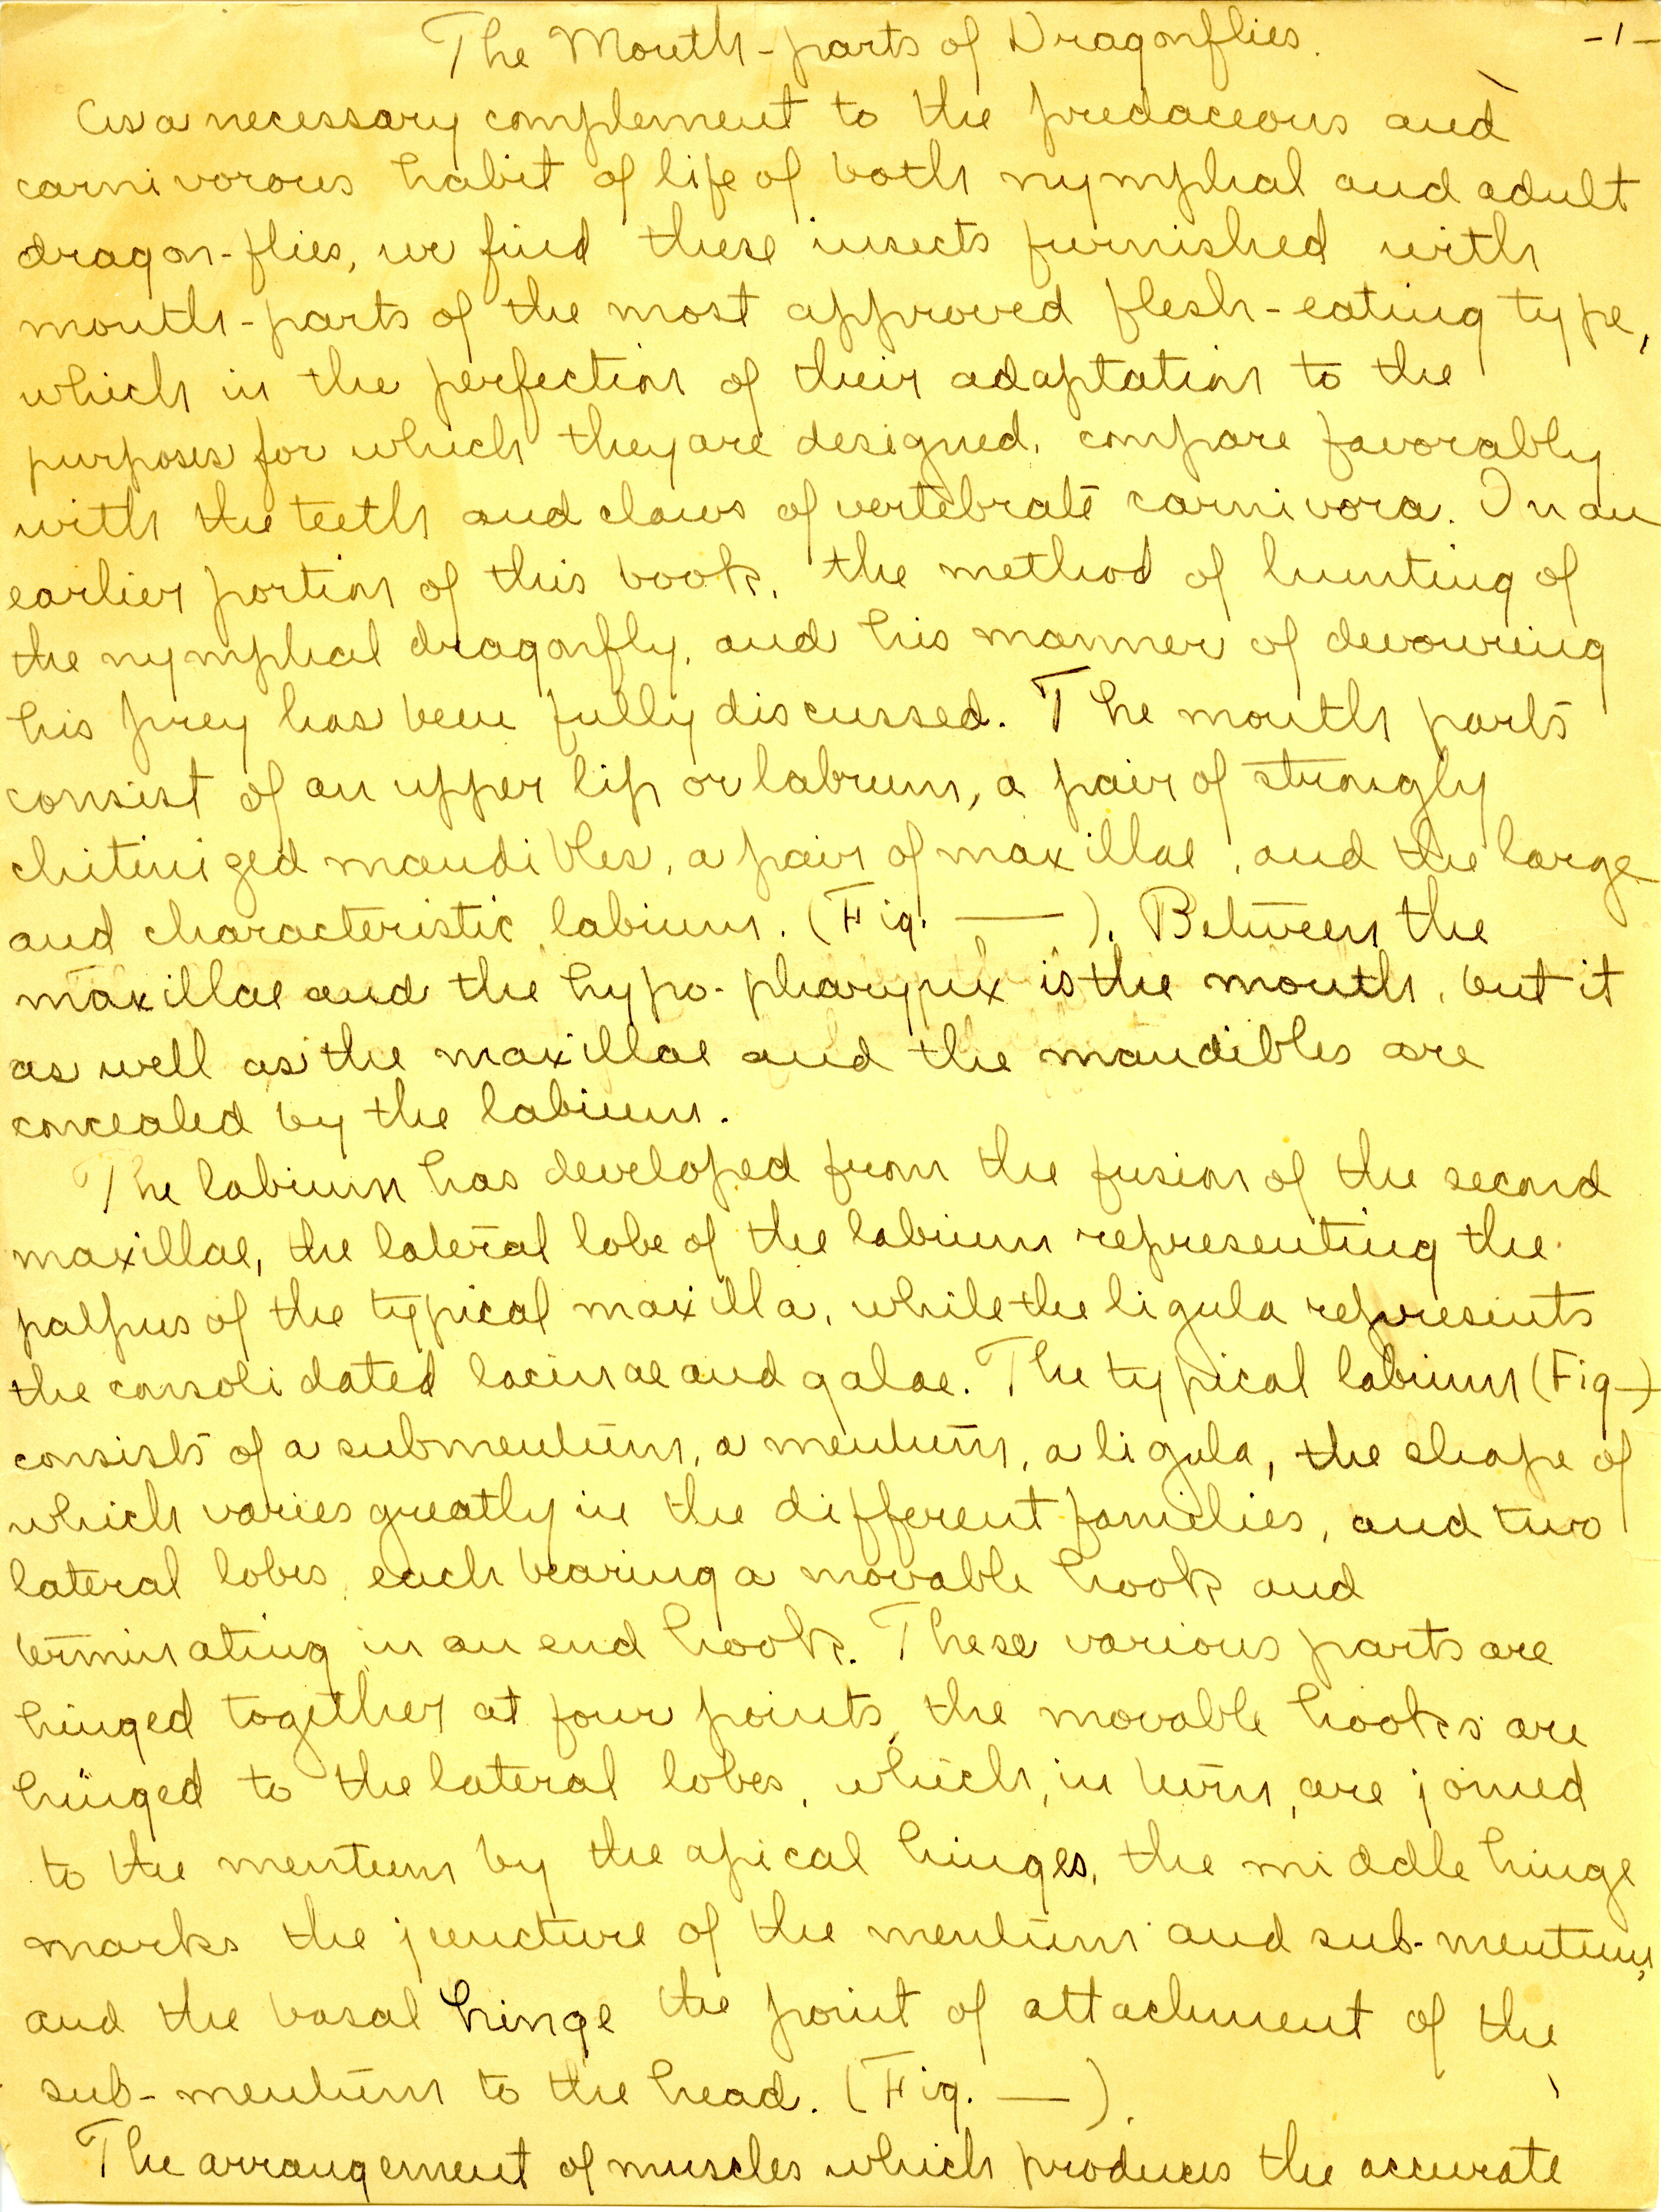 The Mouth-parts of Dragonflies. -1-
As a necessary complement to the predaceous and
carnivorous habit of life of both nymphal and adult
dragon-flies, we find these insects furnished with
mouth-parts of the most approved flesh-eating type,
which in the perfection of their adaptation to the
purposes for which they are designed, compare favorably
with the teeth and claws of vertebrate carnivora. In an
earlier portion of this book, the method of hunting of
the nymphal dragonfly, and his manner of devouring
his prey has been fully discussed. The mouth parts
consist of an upper lip or labrum, a pair of strongly
chitinized mandibles, a pair of maxillae, and the large
and characteristic labium. (Fig. —). Between the
maxillae and the hypo-pharynx is the mouth, but it
as well as the maxillae and the mandibles are
concealed by the labium.
The labium has developed from the fusion of the second
maxillae, the lateral lobe of the labium representing the
palpus of the typical maxilla, while the ligula represents
the consolidated lacinae and galae. The typical labium (Fig—)
consists of a submentum, a mentum, a ligula, the shape of
which varies greatly in the different families, and two
lateral lobes, each bearing a movable hook and
terminating in an end hook. These various parts are
hinged together at four points, the movable hooks are
hinged to the lateral lobes, which, in turn, are joined
to the mentum by the apical hinges, the middle hinge
marks the juncture of the mentum and sub-mentum,
and the basal hinge the point of attachment of the
sub-mentum to the head. (Fig. —).
The arrangement of muscles which produces the accurate